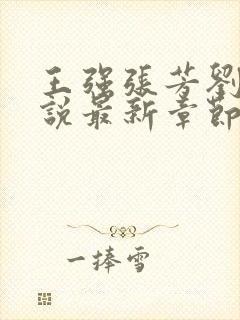 王强張芳劉
說最新章節
一捧雪